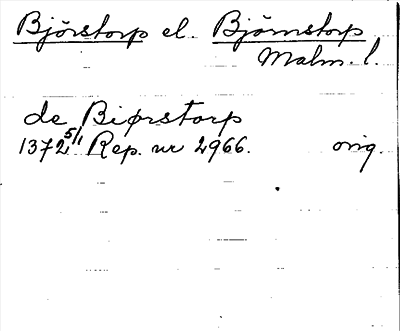 Björstorp el. Björnstorp
Malm. l.
de Biørstorp
1372 5/1 Rep. nr 2966. orig.